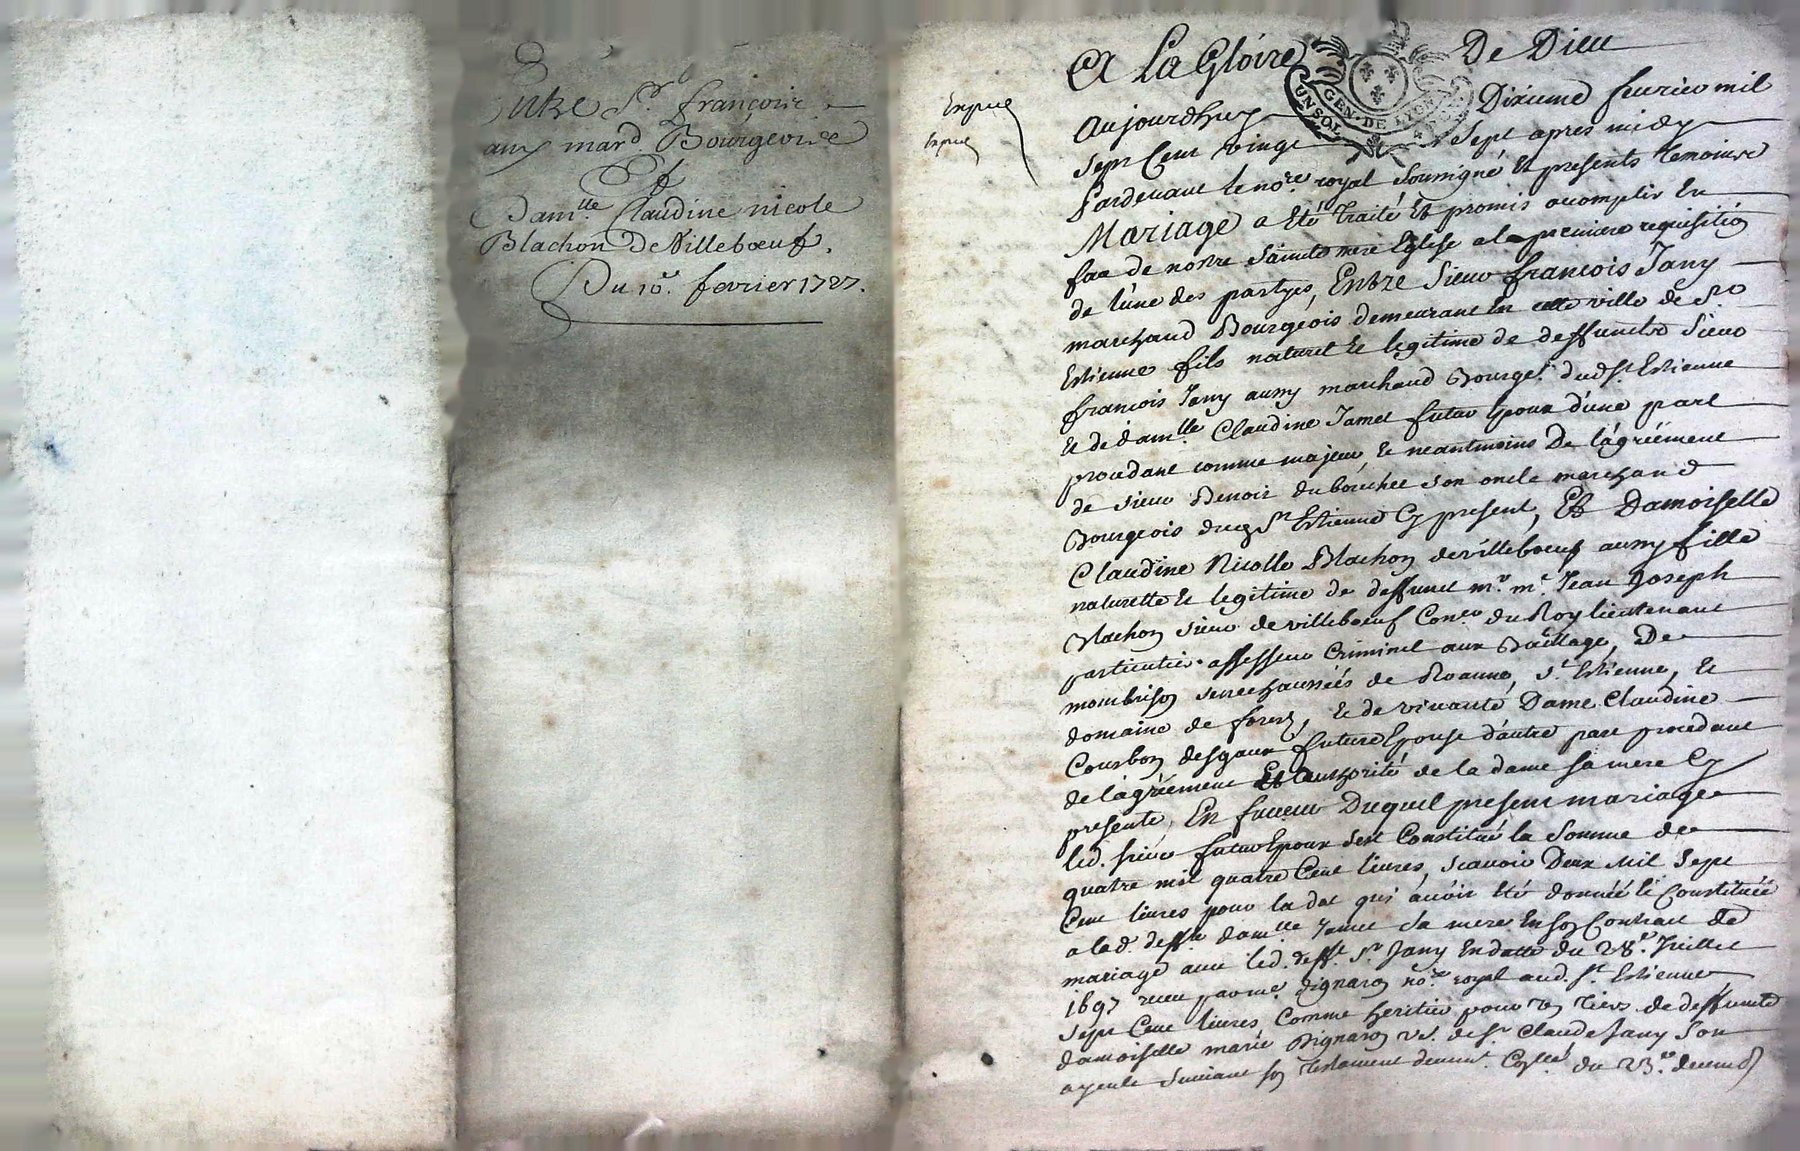 Entre Sr. francois
aux mard Bourgeoise
Et
Damlle Claudine nicole
Blachon De Villebœuf.
Du 10e. fevrier 1727.
Expué
Expué
A La Gloire De Dieu
Aujourdhuy Dixieme fevrier mil
sept Cent vingt sept apres midy
Pardevant le nore. royal soussigné Et presents temoins
Mariage a Eté traité Et promis acomplir En
face de nostre Sainte mere Eglise a la premiere requisition
de lune des partyes, Entre Sieur francois Jany
marchand Bourgeois demeurant En cette ville de St.
Estienne fils naturel Et legitime de deffuncts Sieur
francois Jany aussy marchand Bourges. dud. St. Estienne
Et de damlle. Claudine Jamet futur Epoux d'une part
procedant comme majeur Et neantmoins De l'agréement
de sieur Benoit dubouchet son oncle marchand
Bourgeois dud. St. Estienne Cy present, Et Damoiselle
Claudine Nicolle Blachon de villebœuf aussy fille
naturelle Et legitime de deffunct mr. me. Jean Joseph
Blachon sieur de villebœuf Coner. du Roy lieutenant
particulier assesseur Criminel aux Bailliage, De
mombrison senechaussées de Roanne, St. Estienne, Et
domaine de forez, Et de vivante Dame Claudine
Courbon desgaux future Epouse d'autre part procedant
de l'agréement Et authorité de la dame sa mere Cy
presente, En faveur Duquel present mariage
led. sieur futur Epoux sest Constitué la Somme de
quatre mil quatre Cent livres, scavoir Deux Mil Sept
Cent livres pour la dot qui avoit Eté donnée Et Constituée
a lad. deffte. damlle. Jamet sa mere En son Contract de
mariage avec led. defft. Sr. Jany En datte du 28e. Juillet
1697 receu par me. Dignaron nore. royal aud. St. Estienne
Sept Cent livres Comme heritier pour un tiers de deffuncte
damoiselle marie Dignaron vve. de Sr. Claude Jany Son
ayeule Suivant son Testament du 23e.